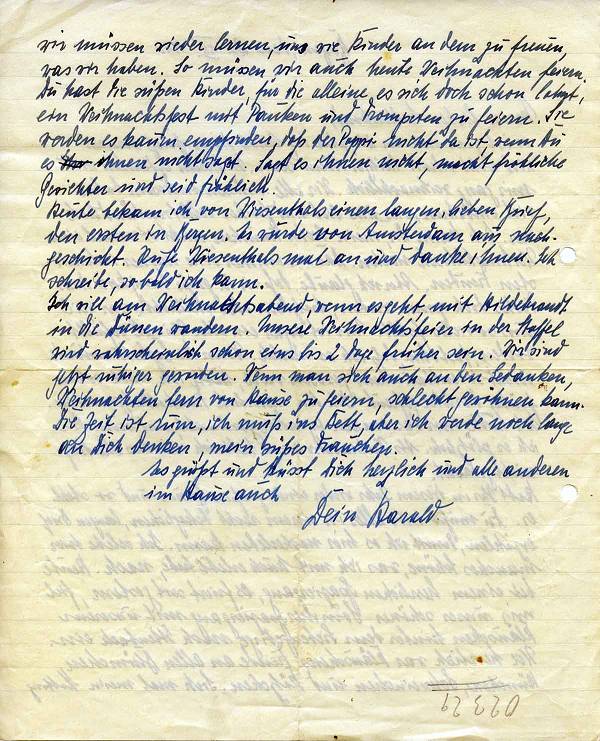 wir müssen wieder lernen, uns wie Kinder an dem zu freuen,
was wir haben. So müssen wir auch heute Weihnachten feiern.
Du hast die süßen Kinder, für die alleine es sich doch schon lohnt,
ein Weihnachtsfest mit Pauken und Trompeten zu feiern. Sie
werden es kaum empfinden, daß der Pappi nicht da ist, wenn Du
es ihnen nicht sagst. Sagt es ihnen nicht, macht fröhliche
Gesichter und seid fröhlich.
Heute bekam ich von Wiesenthals einen langen, lieben Brief,
den ersten in Bergen. Er wurde von Amsterdam aus nach-
geschickt. Rufe Wiesenthals mal an und danke ihnen. Ich
schreibe, sobald ich kann.
Ich will am Weihnachtsabend, wenn es geht, mit Hildebrandt
in die Dünen wandern. Unsere Weihnachtsfeier in der Staffel
wird wahrscheinlich schon eins bis 2 Tage früher sein. Wir sind
jetzt ruhiger geworden. Wenn man sich auch an den Gedanken,
Weihnachten fern von Hause zu feiern, schlecht gewöhnen kann.
Die Zeit ist rum, ich muß ins Bett, aber ich werde noch lange
an Dich denken, mein süßes Frauchen.
Es grüßt und küsst Dich herzlich und alle anderen
im Hause auch
Dein Harald.